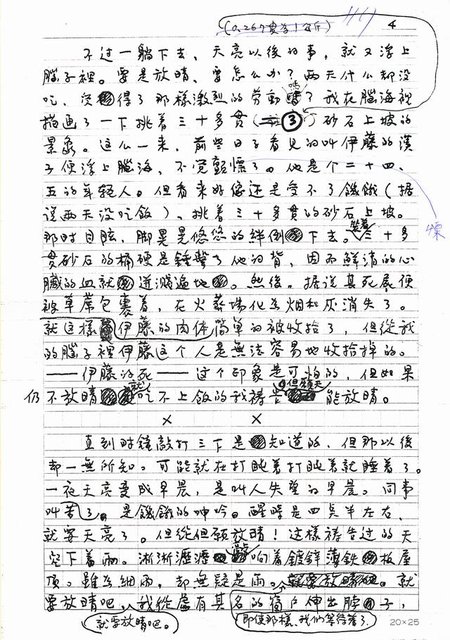 4
不过一躺下去、天亮以後的事，就又浮上
腦子裡。要是放晴、要怎么办？两天什么都没
吃、受得了那樣激烈的劳動嗎？我在腦海裡
描画了一下挑着三十多貫 ③ 砂石上坡的
景象。这么一来，前些日子看見的叫伊藤的漢
子便浮上腦海，不觉
了。他是个二十四、
五的年轻人。但看来他還是受不了饑餓（据
説两天没吃飯）、挑着三十多貫的砂石上坡。
那时目眩，脚
悠悠的
倒下去。三十多
貫砂石的桶硬是
了他的背，因而鮮清的心
臟的血就
地。然後。据说其死屍便
被草蓆包裹着，在火葬場化為烟和灰消失了。
就這樣伊藤的肉体简单的被收拾了，但從我
的腦子裡伊藤这个人是無法容易地收拾掉的。
——伊藤的死——这个印象是可怕的，但如果
仍不放晴就吃不上飯的我禱告但願天能放晴。
× ×
直到时鐘敲打三下是知道的，但那以後
却一無所知。可能就在打盹着打盹着就睡着了。
一夜天亮变成早晨，是叫人失望的早晨。同事
叫苦了。是饑餓的呻吟。醒時是四点半左右、
就要天亮了。但從但願放晴！这樣禱告过的天
空下着雨。淅淅瀝瀝
响着鍍鋅薄鉄板屋
頂。雖為細雨，却無疑是雨。
就
要放晴吧，我從虚有其名的窗戸伸出脖子，
就要放晴吧。
即使那樣，我们等待着了。
20×25